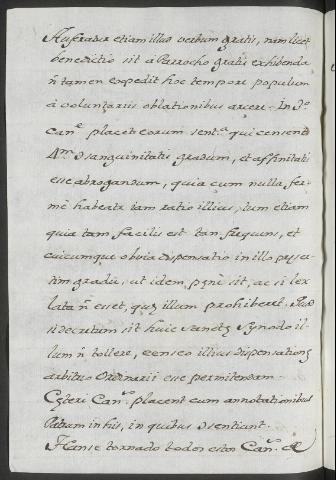 Auferatur etiam illud verbum gratis, nam licet
benedictio sit à Parrocho gratis exhibenda
ñ tamen expedit hoc tempore populum
à voluntariis oblationibus arcere. In 3º
Can.e placet eorum sent.a qui censent
4.m ɔsanguinitatis gradum, et affinitatis
esse abrogandum, quia cum nulla, fer-
mè habeatur tam ratio illius, tum etiam
quia tam facilis est tan frequens, et
cuicumque obvia dispensatio in illo præser-
tim gradu, ut idem sit, ac si lex
lata ñ esset, quæ illum prohiberet.
si decretum sit huic sanctæ Synodo il-
lum ñ tollere, censeo illius dispensationē
arbitrio Ordinarii esse permitendam.
Cæteri Can.e placent cum annotationibus
Patrum in his, in quibus ɔsentiunt.
Hanse tornado todos estos Can.e